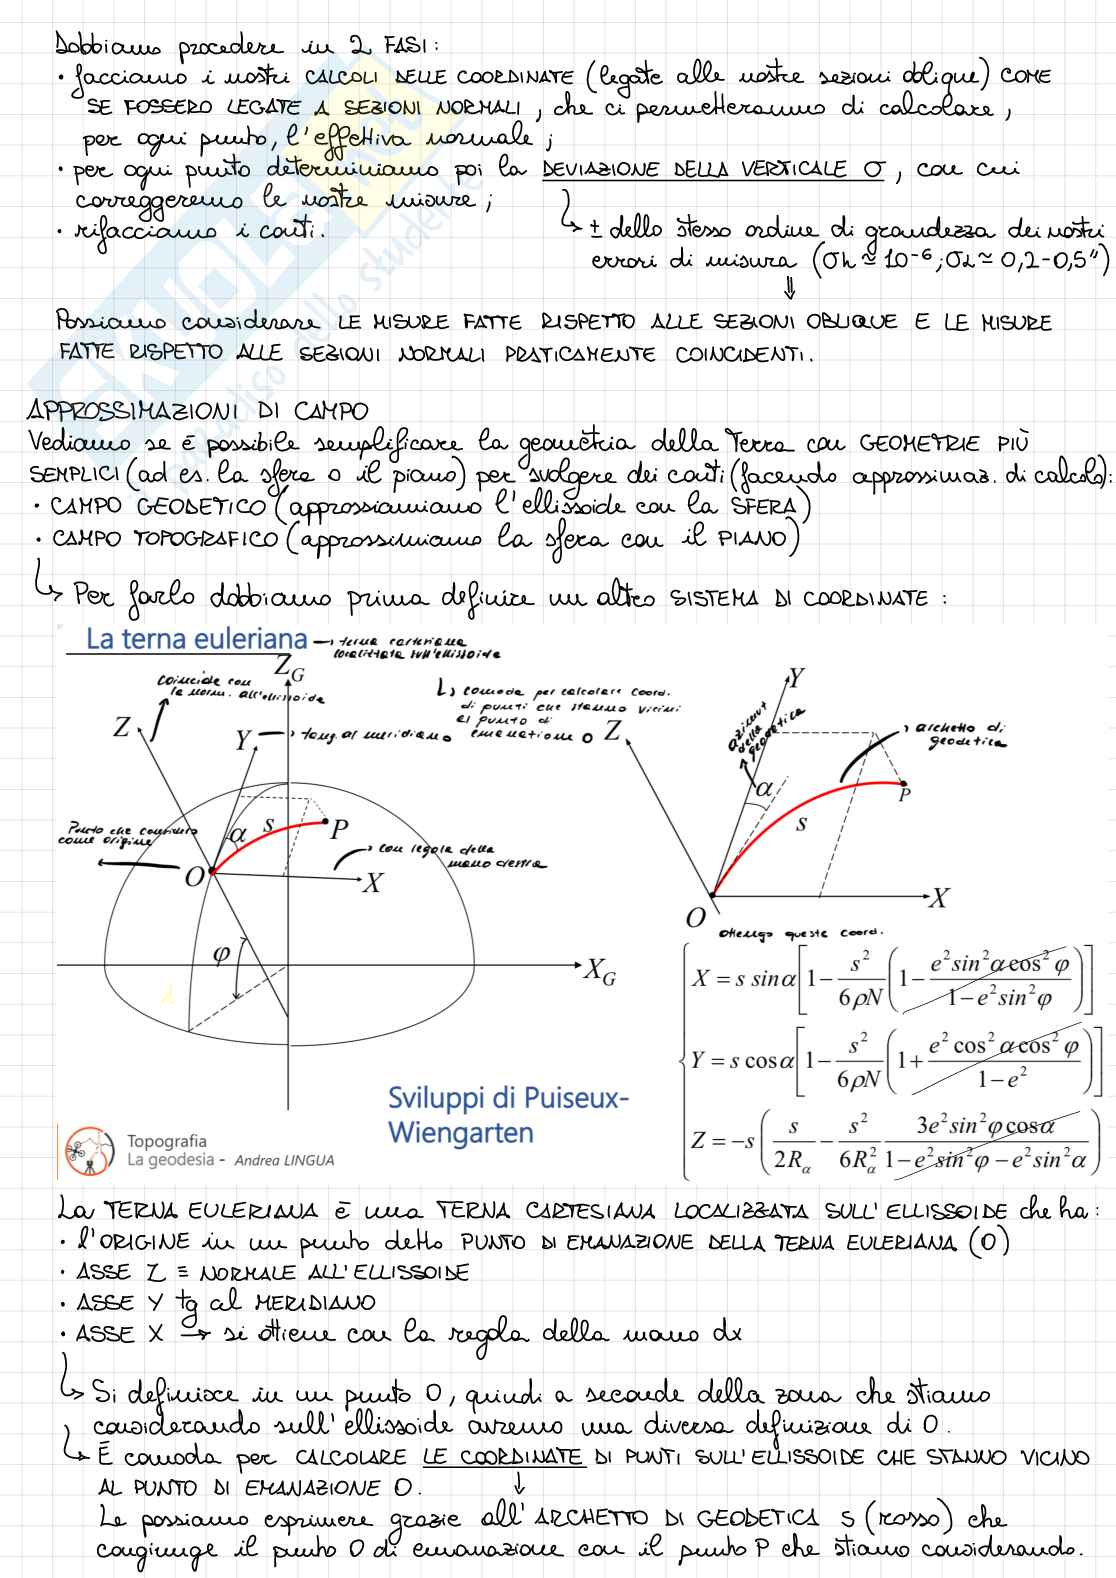 Dobbiamo procedere in 2 FASI:
• facciamo i nostri CALCOLI DELLE COORDINATE (legate alle nostre sezioni oblique) COME
SE FOSSERO LEGATE A SEZIONI NORMALI, che ci permetteranno di calcolare,
per ogni punto, l'effettiva normale;
• per ogni punto determiniamo poi la DEVIAZIONE DELLA VERTICALE σ, con cui
correggeremo le nostre misure;
• rifacciamo i conti.
↳ ± dello stesso ordine di grandezza dei nostri
errori di misura (σh ≃ 10⁻⁶; σα ≃ 0,2-0,5")
⇓
Possiamo considerare LE MISURE FATTE RISPETTO ALLE SEZIONI OBLIQUE E LE MISURE
FATTE RISPETTO ALLE SEZIONI NORMALI PRATICAMENTE COINCIDENTI.
APPROSSIMAZIONI DI CAMPO
Vediamo se è possibile semplificare la geometria della Terra con GEOMETRIE PIÙ
SEMPLICI (ad es. la sfera o il piano) per svolgere dei conti (facendo approssimaz. di calcolo):
• CAMPO GEODETICO (approssimiamo l'ellissoide con la SFERA)
• CAMPO TOPOGRAFICO (approssimiamo la sfera con il PIANO)
↳ Per farlo dobbiamo prima definire un altro SISTEMA DI COORDINATE:
La terna euleriana → terna cartesiana
localizzata sull'ellissoide
coincide con
la norm. all'ellissoide
↳ comoda per calcolare coord.
di punti che stanno vicini
al punto di
emanazione O
Z_G
Z
Y → tang. al meridiano
Punto che considero
come origine
O
α
s
P
→ con regola della
mano destra
X
φ
λ
X_G
Z
Y
azimut
della
geodetica
→ archetto di
geodetica
α
s
P
O
X
ottengo queste coord.
X = s sinα[1 − s²/6ρN (1 − e²sin²αcos²φ/1−e²sin²φ)]
Y = s cosα[1 − s²/6ρN (1 + e²cos²αcos²φ/1−e²)]
Z = −s(s/2R_α − s²/6R_α² 3e²sin²φcosα/1−e²sin²φ−e²sin²α)
Sviluppi di Puiseux-
Wiengarten
Topografia
La geodesia - Andrea LINGUA
La TERNA EULERIANA è una TERNA CARTESIANA LOCALIZZATA SULL'ELLISSOIDE che ha:
• l'ORIGINE in un punto detto PUNTO DI EMANAZIONE DELLA TERNA EULERIANA (O)
• ASSE Z ≡ NORMALE ALL'ELLISSOIDE
• ASSE Y tg al MERIDIANO
• ASSE X → si ottiene con la regola della mano dx
↳ Si definisce in un punto O, quindi a seconde della zona che stiamo
considerando sull'ellissoide avremo una diversa definizione di O.
↳ È comoda per CALCOLARE LE COORDINATE DI PUNTI SULL'ELLISSOIDE CHE STANNO VICINO
AL PUNTO DI EMANAZIONE O. ↓
Le possiamo esprimere grazie all'ARCHETTO DI GEODETICA S (rosso) che
congiunge il punto O di emanazione con il punto P che stiamo considerando.